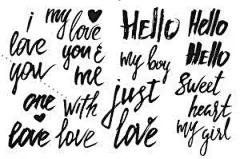 i love you
my love
you &
me
one love
with love
Hello
my boy
just love
Hello
Hello
Sweet heart
my girl